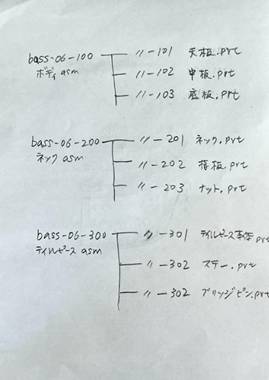 bass-06-100 〃-101 天板.prt
ボディ asm 〃-102 中板.prt
〃-103 底板.prt
bass-06-200 〃-201 ネック.prt
ネック asm 〃-202 指板.prt
〃-203 ナット.prt
bass-06-300 〃-301 テイルピース.prt
テイルピース asm 〃-302 ステー.prt
〃-302 ブリッジピン.prt